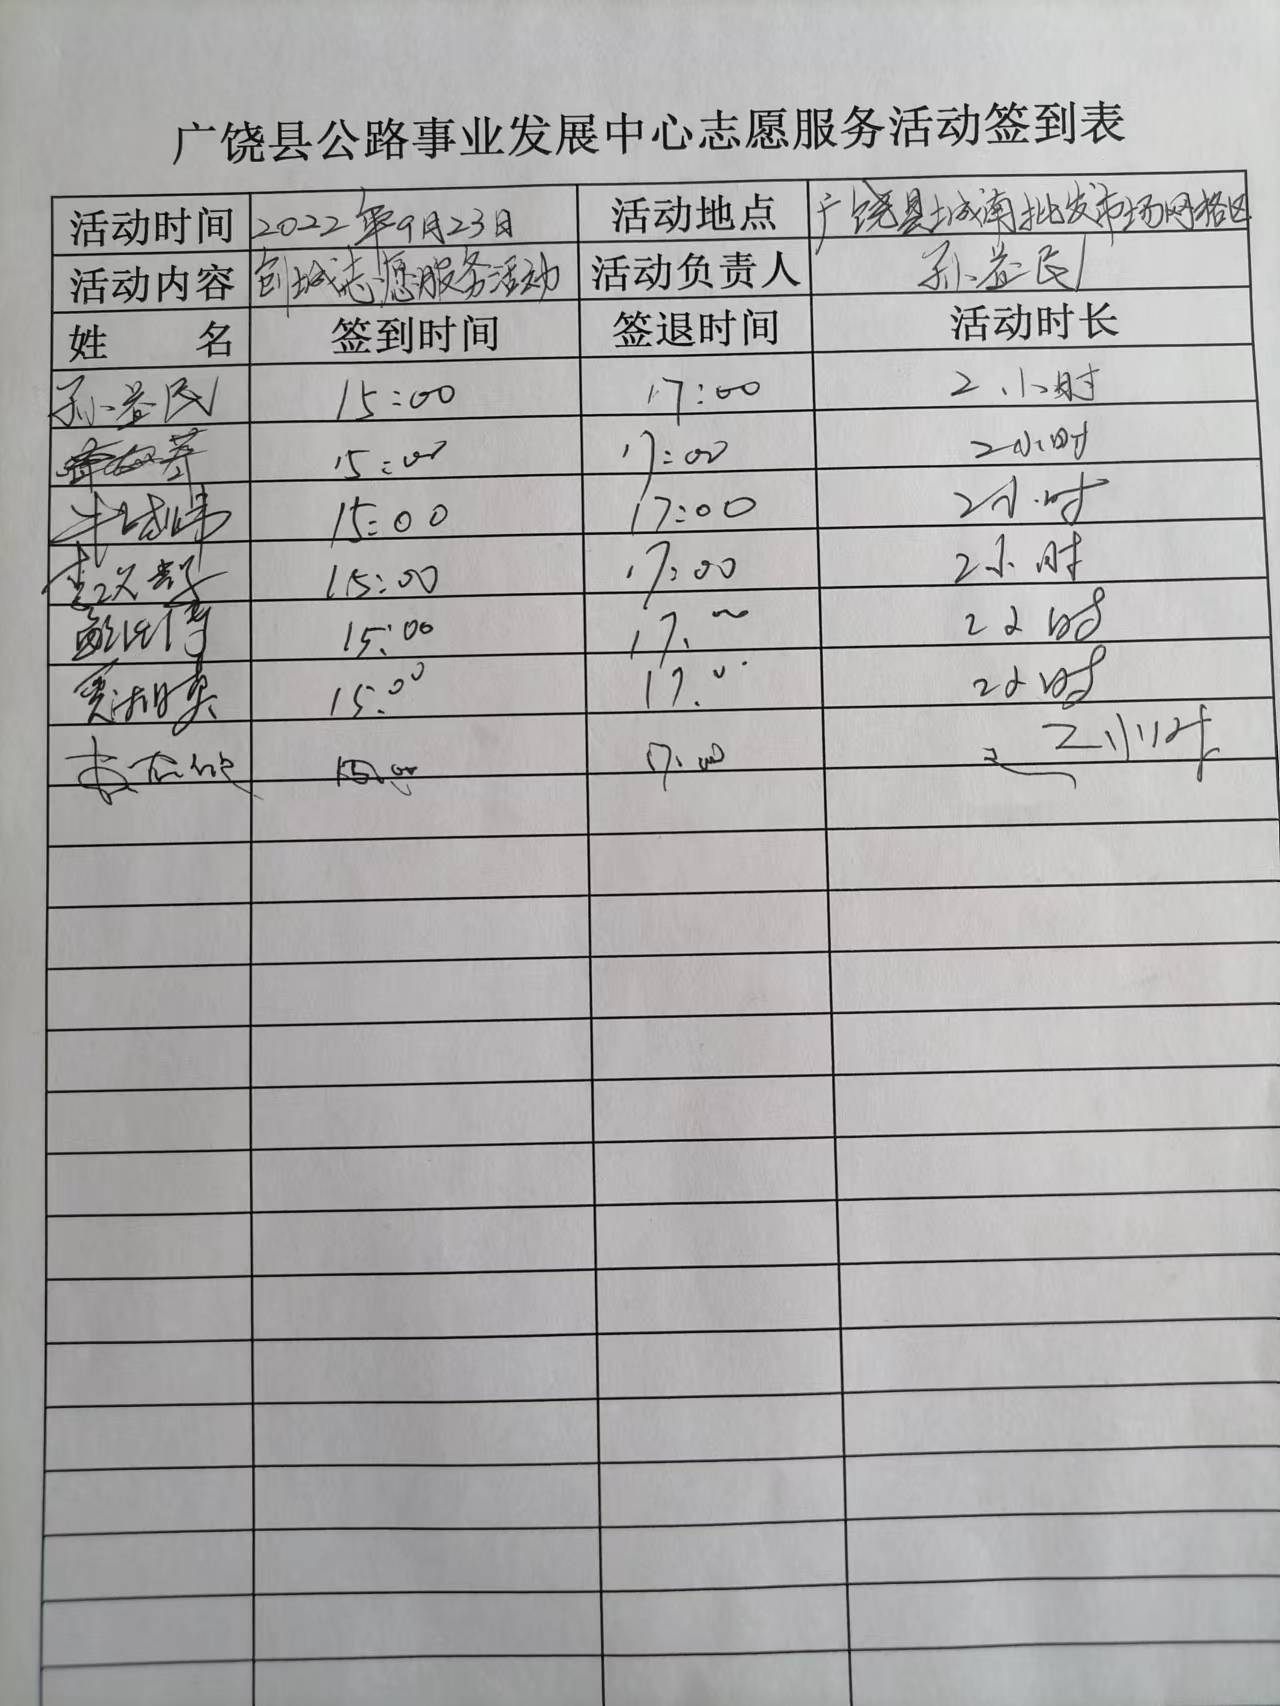 广饶县公路事业发展中心志愿服务活动签到表
活动时间 2022年9月23日 活动地点 广饶县城南批发市场网格区
活动内容 创城志愿服务活动 活动负责人 孙益民
姓 名 签到时间 签退时间 活动时长
孙益民 15:00 17:00 2小时
15:00 17:00 2小时
15:00 17:00 2小时
15:00 17:00 2小时
15:00 17:00 2小时
15:00 17:00 2小时
17:00 2小时